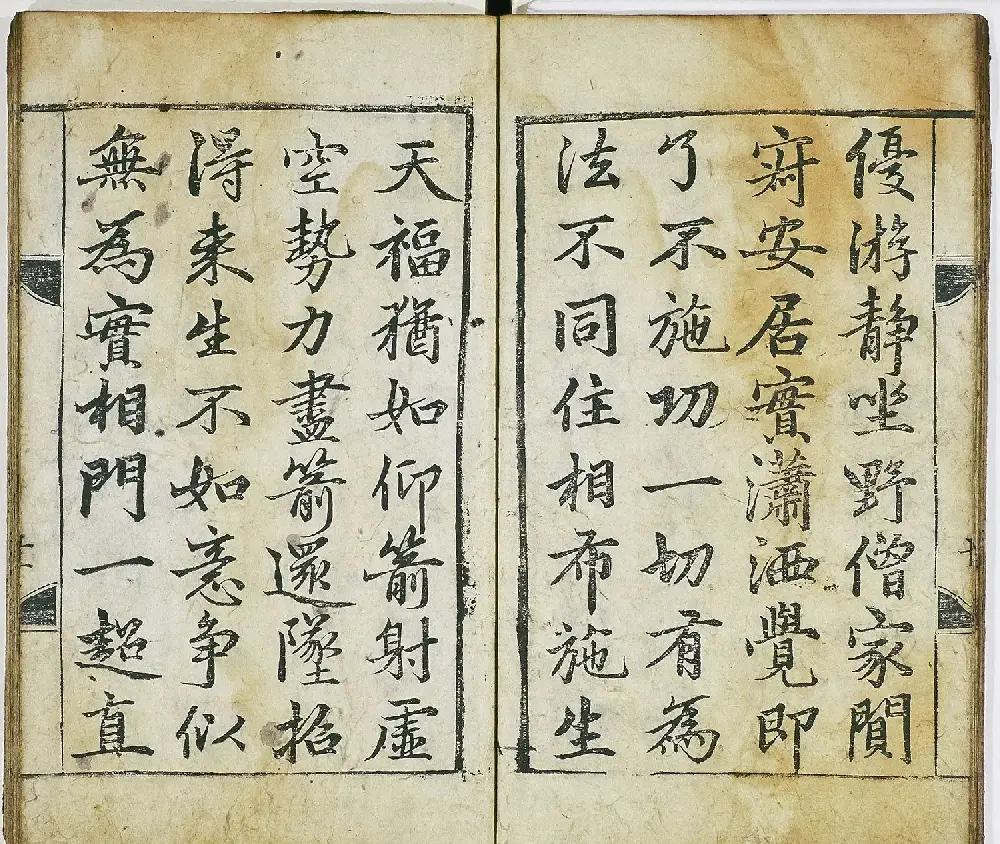 優游静坐野僧家閴
寂安居實瀟洒覺即
了不施功一切有為
法不同住相布施生
天福猶如仰箭射虚
空勢力盡箭還墜招
得来生不如意争似
無為實相門一超直